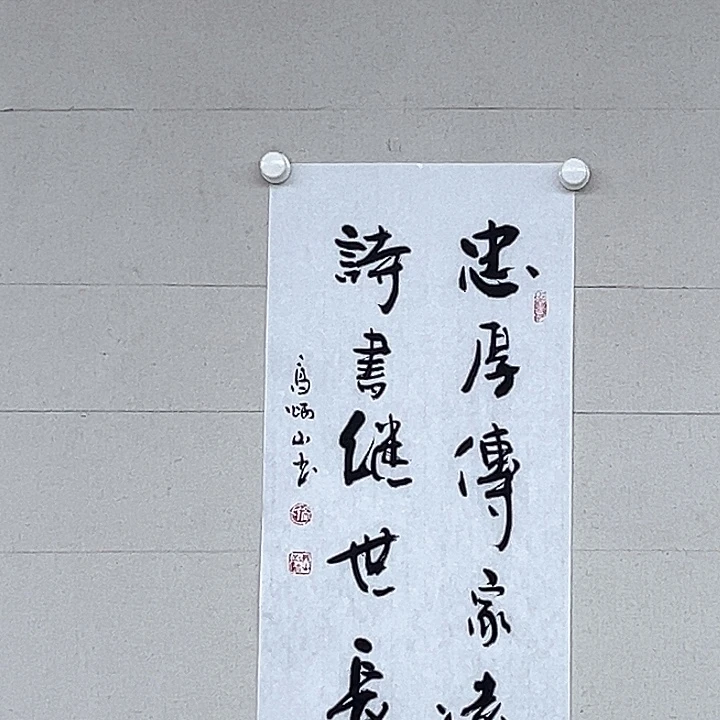 忠厚傳家遠
詩書继世長
高炳山书